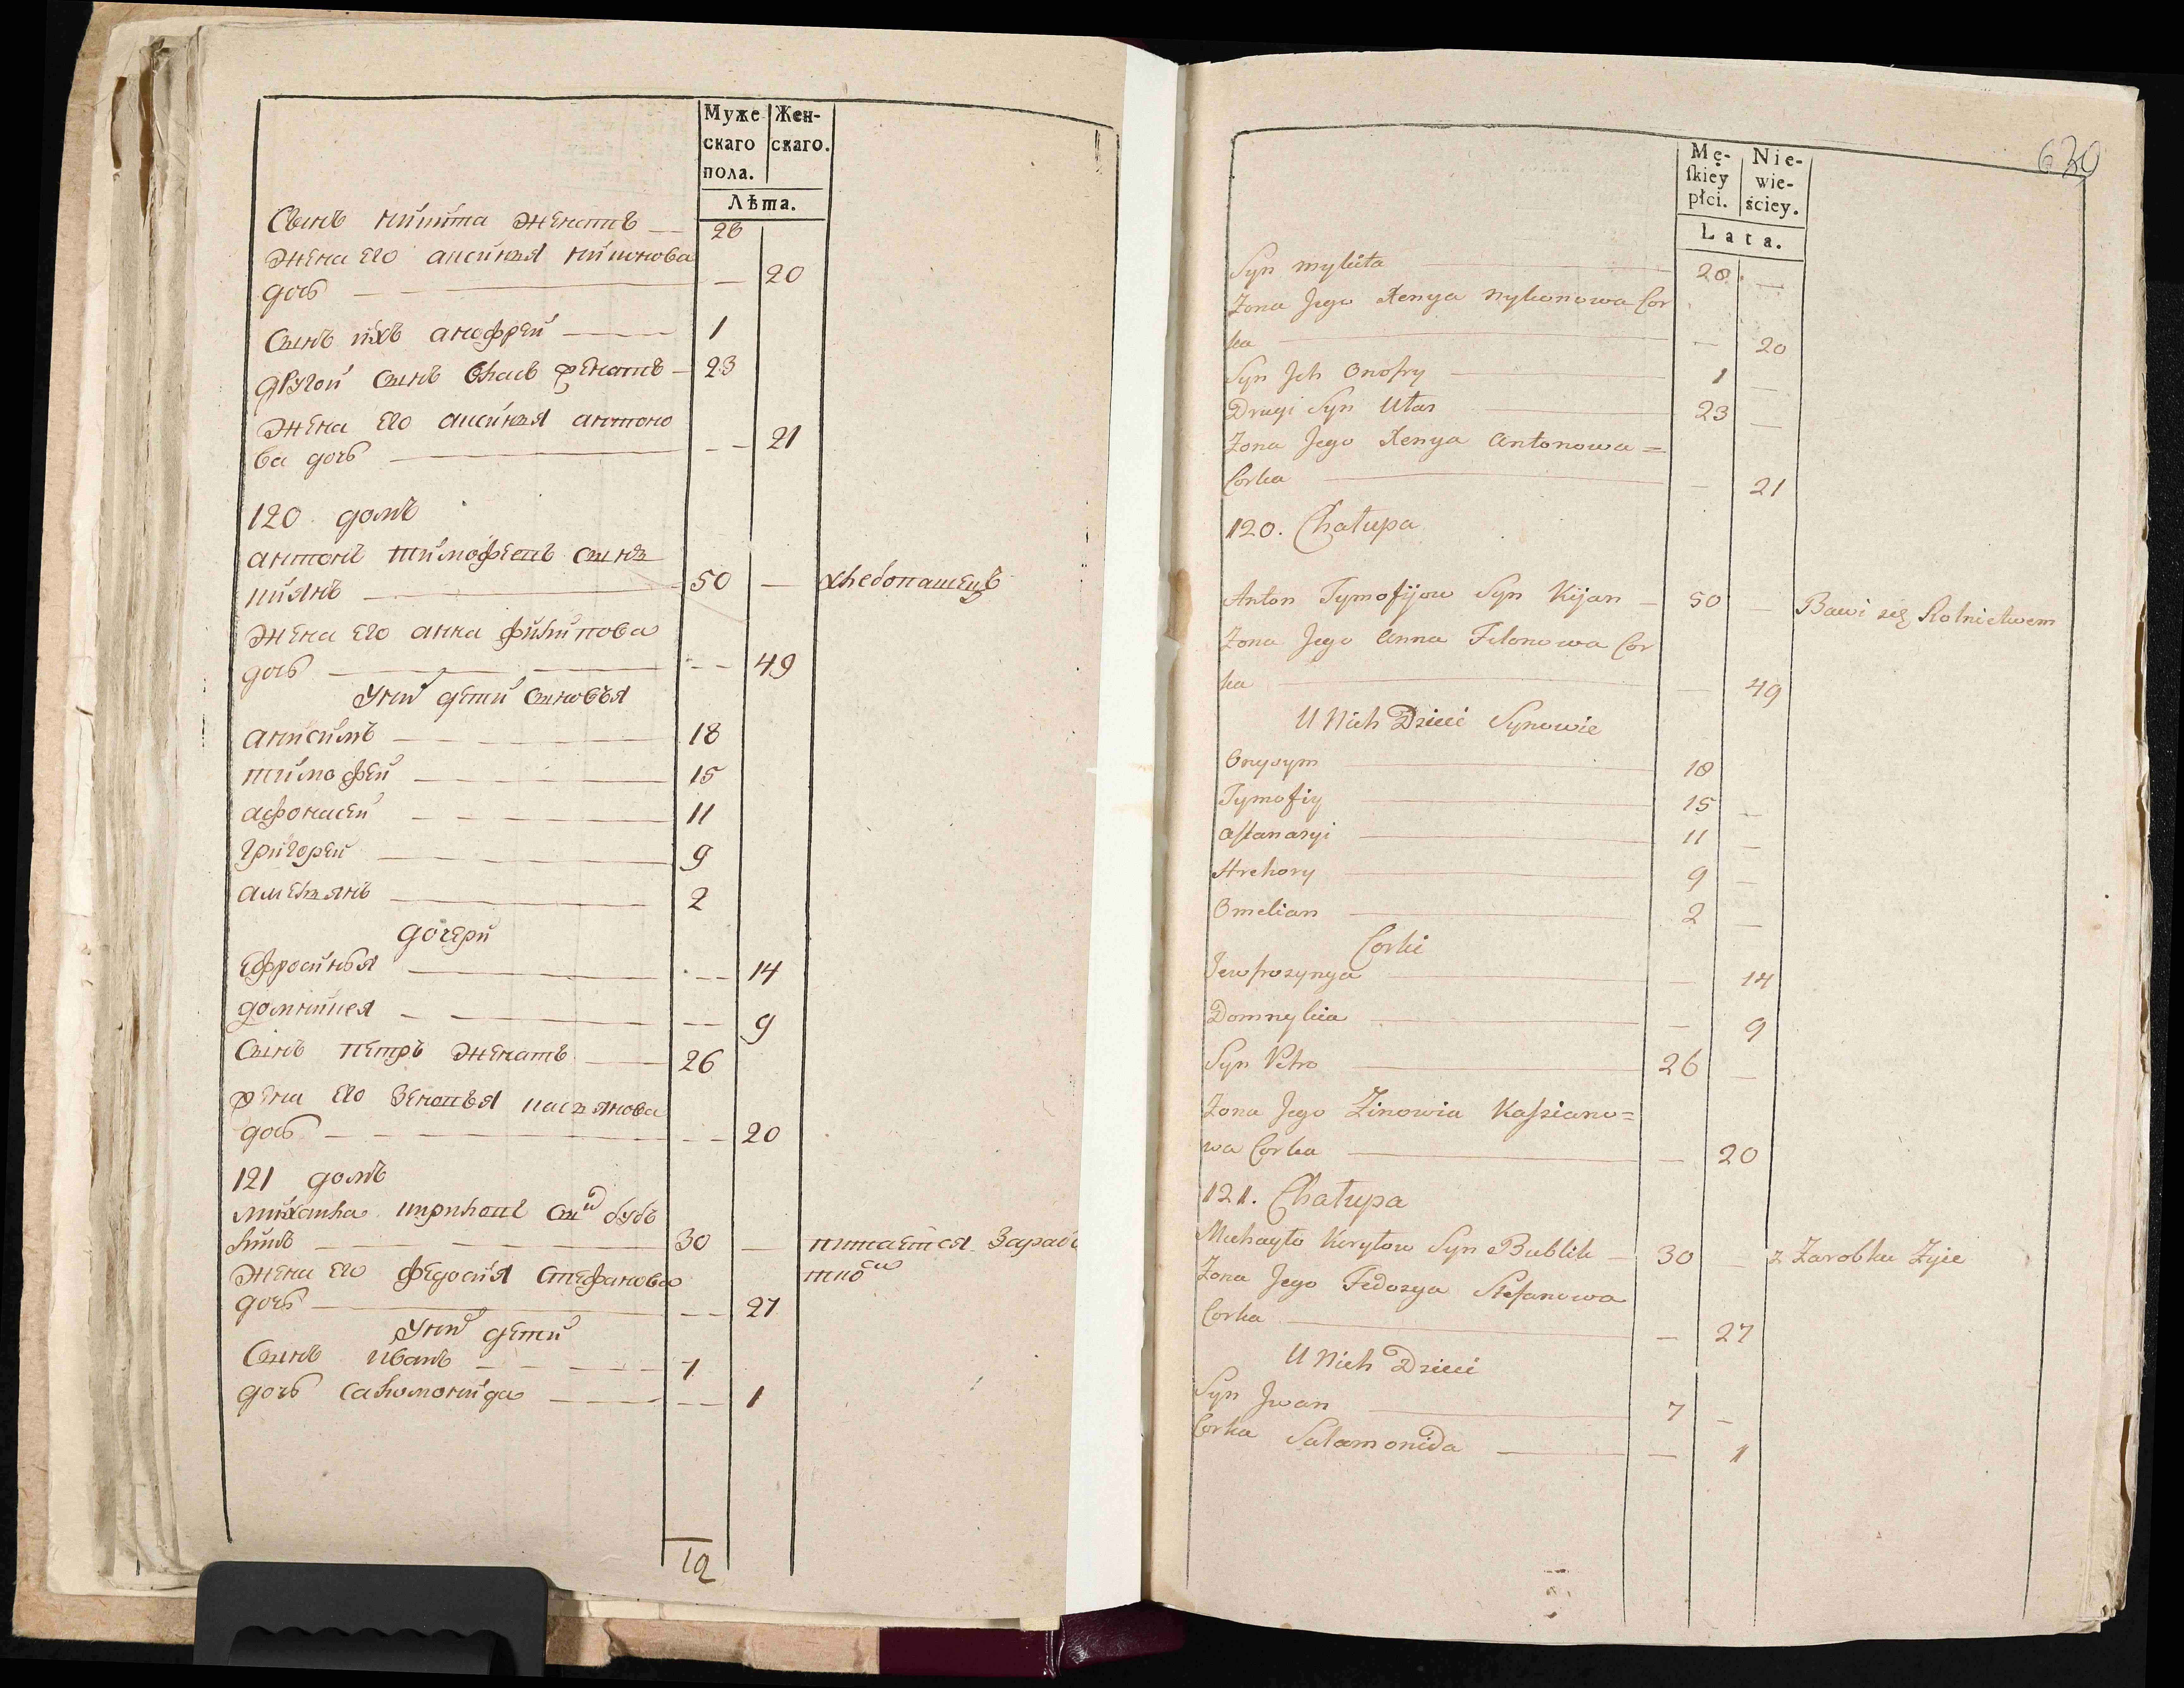 Муже
скаго
пола.
Жен-
скаго.
Лѣта.
Сынъ никита женатъ 28
жена его аксинья никонова
дочь 20
Сынъ ихъ анофрей 1
другой сынъ Власъ женатъ 23
жена его аксинья антоно
ва дочь 21
120 домъ
антонъ тимофеевъ сынъ
киянъ 50 — хлебопашецъ
жена его анна филипова
дочь 49
У них дети Сыновья
анисимъ 18
тимофей 15
афонасей 11
григорей 9
амельянъ 2
дочери
Ефросинья 14
домникея 9
Сынъ петръ женатъ 26
жена его Зеновья касьянова
дочь 20
121 домъ
михайла кириловъ сын бубъ
ликъ 30 — питается Зарабо
ткою
жена его федосия Стефанова
дочь 27
У них дети
Сынъ иванъ 7
дочь саломонида 1
12
630
Mę-
skiey
płci.
Nie-
wie-
ściey.
Lata.
Syn mykita 28. —
Zona Jego Xenya Nykonowa Cor
ka — 20
Syn Jch Onofry 1 —
Drugi Syn Ułas 23 —
Zona Jego Xenya Antonowa =
Corka — 21
120. Chałupa
Anton Tymofijow Syn Kijan — 50 — Bawi się Rolnictwem
Zona Jego Anna Filonowa Cor
ka — 49
U Nich Dzieci Synowie
Onysym 18
Tymofiy 15 —
Aftanasyi 11 —
Hrehory 9 —
Omelian 2 —
Corki
Jewfrozynya — 14
Domnykia — 9
Syn Petro 26 —
Zona Jego Zinowia Kassiano=
wa Corka — 20
121. Chałupa
Michayło Kiryłow Syn Bublik — 30 — z Zarobku Zyie
Zona Jego Fedosya Stefanowa
Corka — 27
U Nich Dzieci
Syn Jwan 7 —
Corka Salamonida — 1